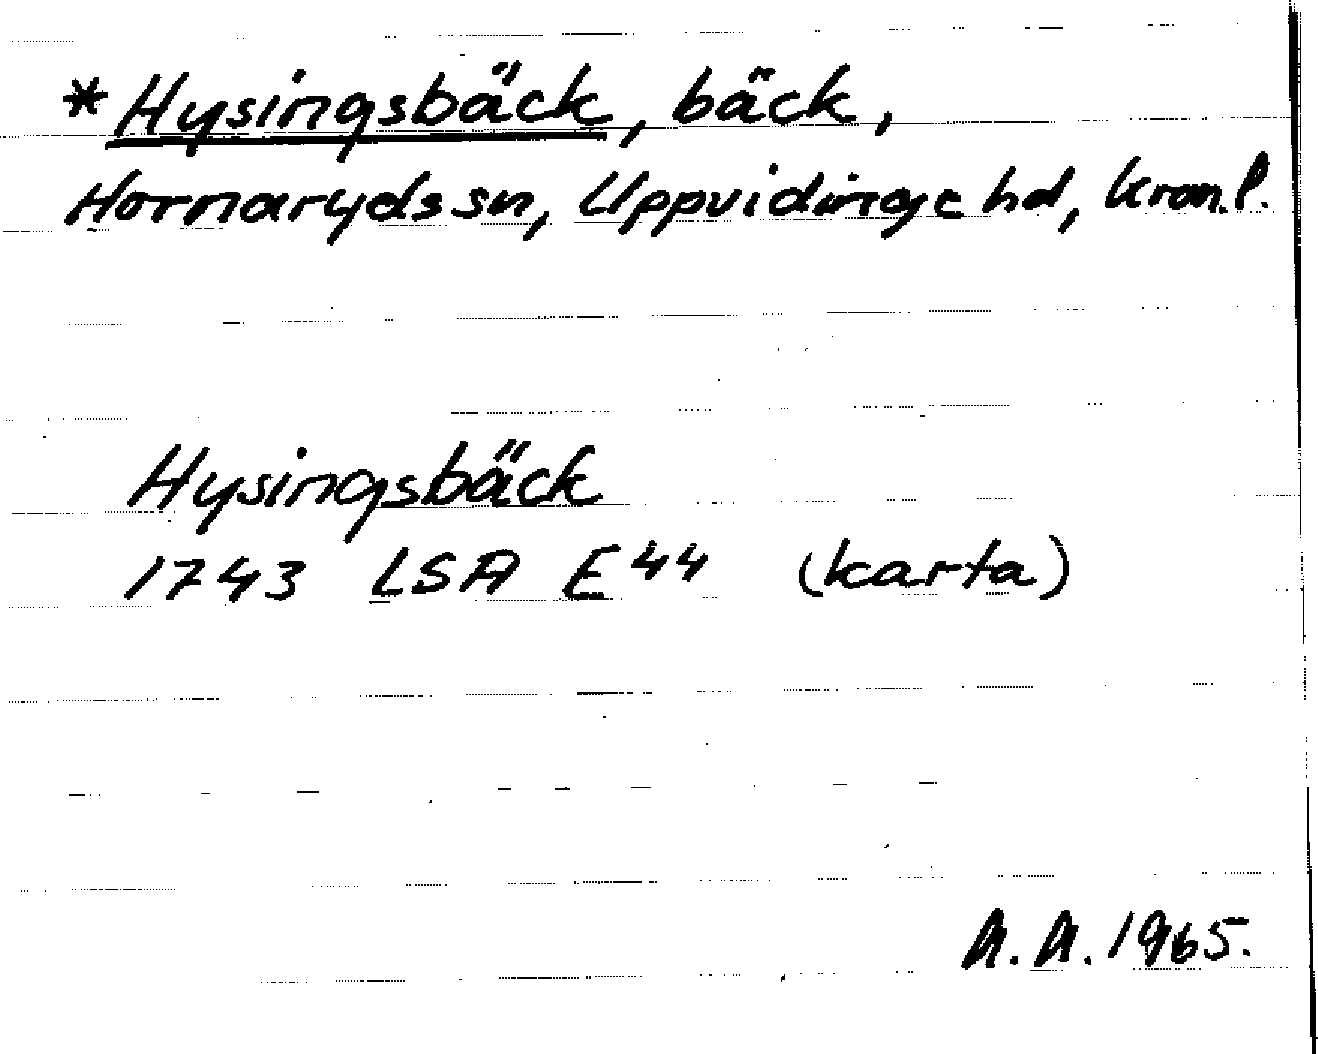 *Hysingsbäck, bäck,
Hornaryds sn, Uppvidinge hd, Kron.l.
Hysingsbäck
1743 LSA E44 (karta)
A.A. 1965.